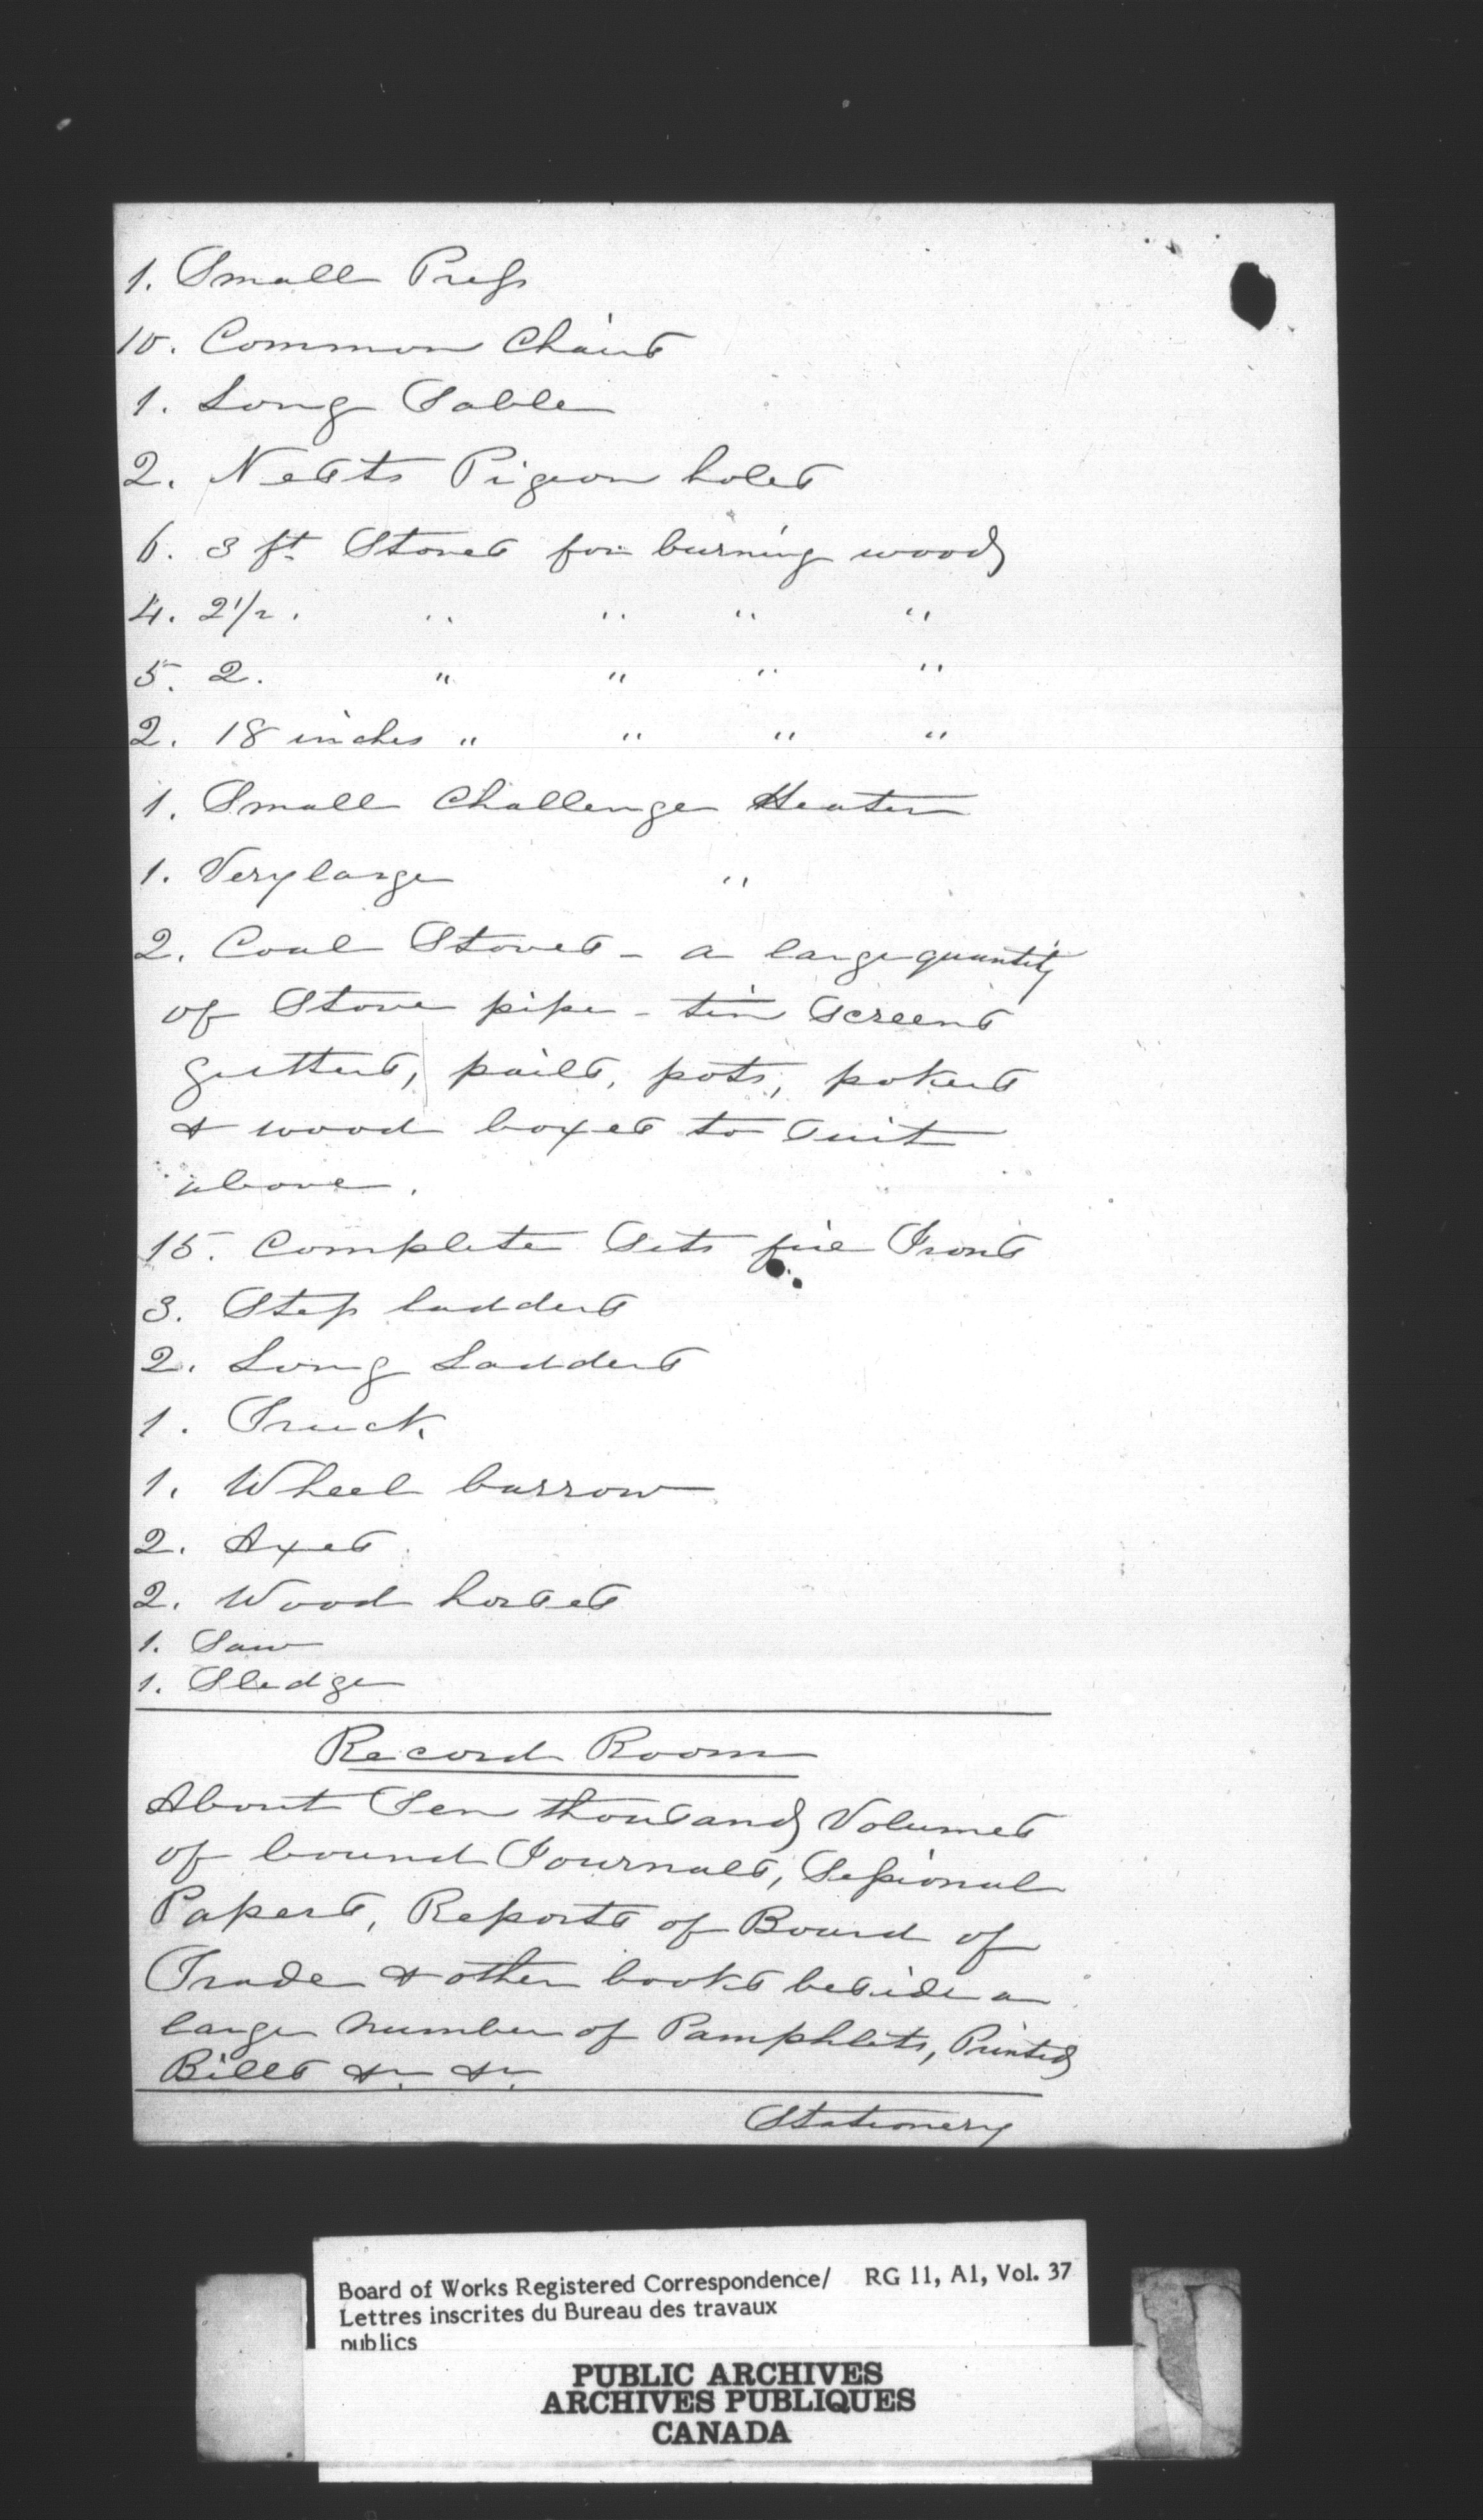 1. Small Press
10. Common Chairs
1. Long Table
2. Nests Pigeon holes
6. 3 ft. Stoves for burning wood
4. 2 1/2 . " " " "
5. 2. " " " "
2. 18 inches " " " "
1. Small Challenge Heater
1. Very large "
2. Coal Stoves - a large quantity
of Stove pipe - tin Screens
gutters, pails, pots, pokers
& wood boxes to suit
above.
15. Complete Sets fire Irons
3. Step ladders
2. Long Ladders
1. Truck
1. Wheel barrow
2. Axes
2. Wood horses
1. Saw
1. Sledge
Record Room
About Ten thousand Volumes
of bound Journals, Sessional
Papers, Reports of Board of
Trade & other books beside a
large number of Pamphlets, Printed
Bills &c. &c.
Stationery
Board of Works Registered Correspondence/ RG 11, A1, Vol. 37
Lettres inscrites du Bureau des travaux
publics
PUBLIC ARCHIVES
ARCHIVES PUBLIQUES
CANADA